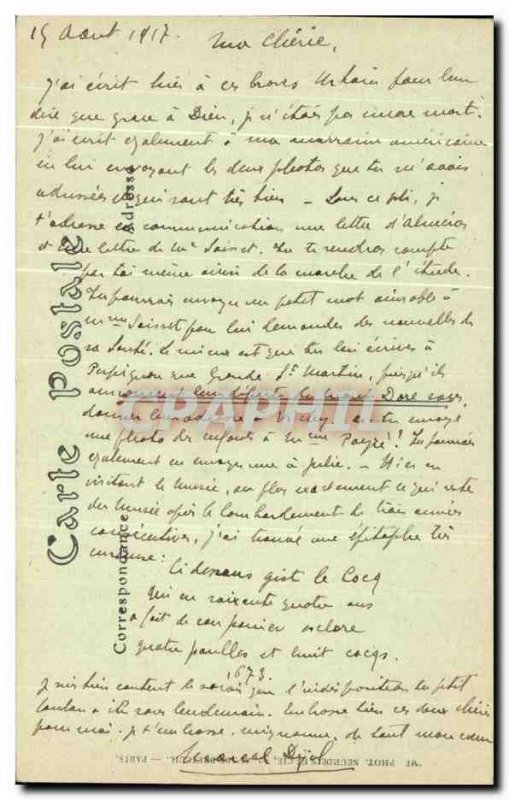 15 Aout 1917.
Ma Chérie,
J'ai écrit hier à ces braves Urbain pour leur
dire que grace à Dieu, je n'étais pas encore mort.
J'ai écrit egalement à ma marraine américaine
en lui envoyant les deux photos que tu m'avais
adressées et qui sont très bien – Sous ce pli, je
t'adresse en communication une lettre d'Almeras
et une lettre de Mr Saisset. Tu te rendras compte
par toi même ainsi de la marche de l'étude.
Tu pourrais envoyer un petit mot aimable à
Mme Saisset pour lui demander des nouvelles de
sa Santé. Le mieux est que tu lui écrives à
Perpignan rue Grande St Martin, puisqu'ils
annoncent leur départ
donner leur adresse Vichy. as tu envoyé
une photo des enfants à Mme Payré! Tu pourrais
egalement en envoyer une à Julie. – Hier en
visitant le Musée, ou plus exactement ce qui reste
du Musée après le bombardement de trois années
consécutives, j'ai trouvé une épitaphe très
curieuse:
Ci dessous gist le Cocq
Qui en soixante quatre ans
a fait de son panier eclore
quatre poulles et huit cocqs.
1673.
Je suis bien content de savoir que l'indisposition du petit
a été sans lendemain. Embrasse bien ces deux chéris
pour moi. Je t'embrasse, mignonne, de tout mon cœur
Marcel
Carte Postale
Correspondance
Adresse
CPAPHIL
PHOT. NEURDEIN ET CIE. PARIS.